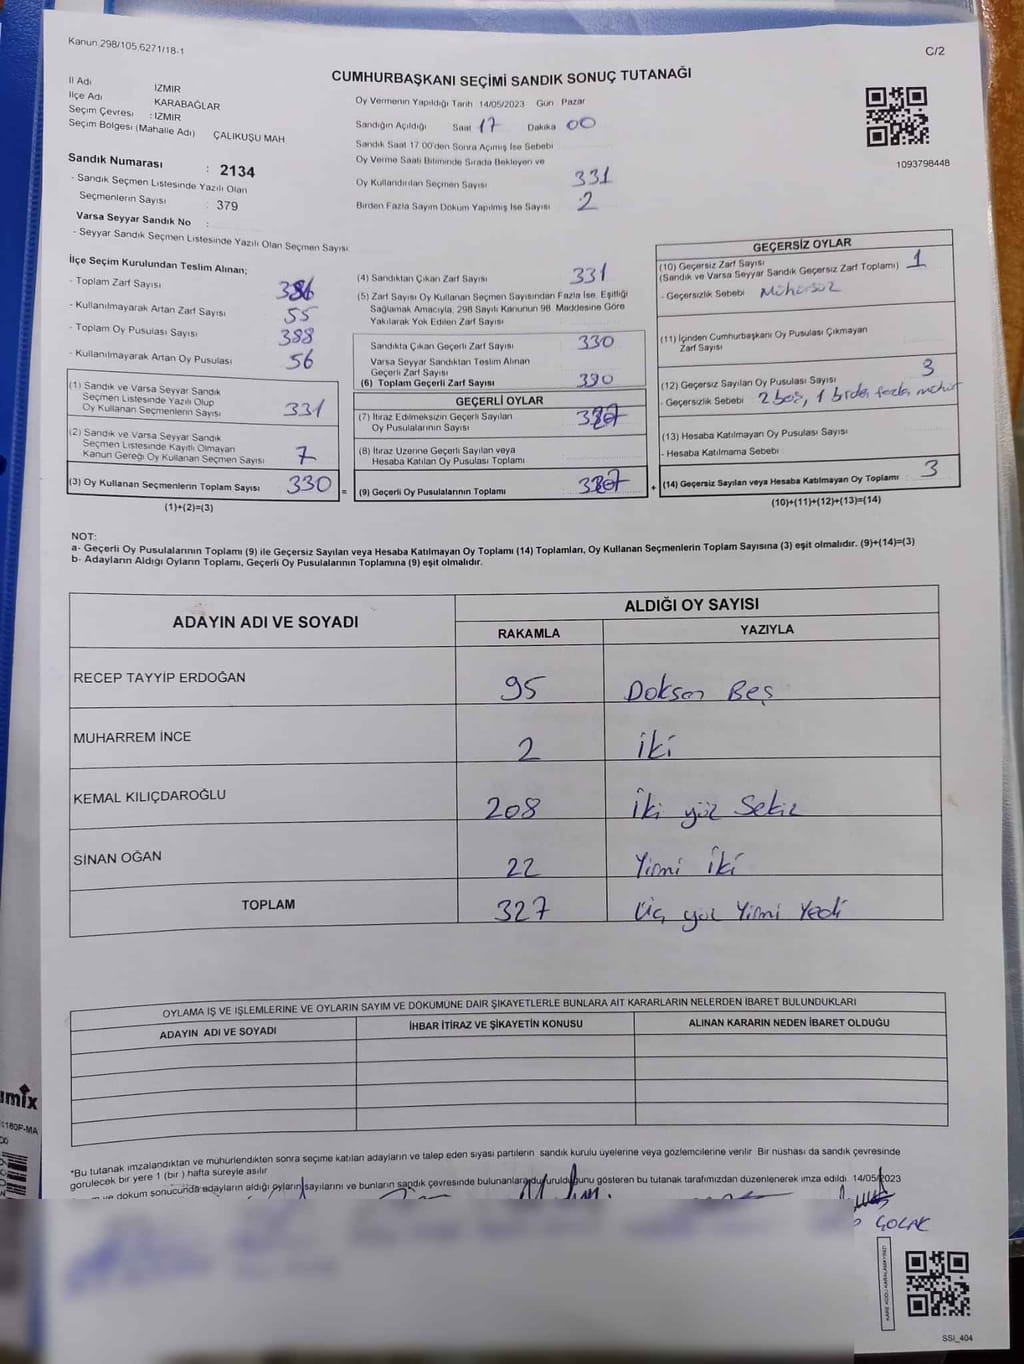 Kanun 298/105,6271/18-1
C/2
CUMHURBAŞKANI SEÇİMİ SANDIK SONUÇ TUTANAĞI
İl Adı IZMIR
İlçe Adı KARABAĞLAR
Seçim Çevresi : IZMIR
Seçim Bölgesi (Mahalle Adı) ÇALIKUŞU MAH
Oy Vermenin Yapıldığı Tarih 14/05/2023 Gün Pazar
Sandığın Açıldığı Saat 17 Dakika 00
Sandık Saat 17 00'den Sonra Açılmış İse Sebebi
Oy Verme Saati Bitiminde Sırada Bekleyen ve
Oy Kullandırılan Seçmen Sayısı 331
Birden Fazla Sayım Döküm Yapılmış İse Sayısı 2
1093798448
Sandık Numarası : 2134
- Sandık Seçmen Listesinde Yazılı Olan
Seçmenlerin Sayısı : 379
Varsa Seyyar Sandık No :
- Seyyar Sandık Seçmen Listesinde Yazılı Olan Seçmen Sayısı
İlçe Seçim Kurulundan Teslim Alınan;
- Toplam Zarf Sayısı 386
- Kullanılmayarak Artan Zarf Sayısı 55
- Toplam Oy Pusulası Sayısı 388
- Kullanılmayarak Artan Oy Pusulası 56
(1) Sandık ve Varsa Seyyar Sandık
Seçmen Listesinde Yazılı Olup
Oy Kullanan Seçmenlerin Sayısı 331
(2) Sandık ve Varsa Seyyar Sandık
Seçmen Listesinde Kayıtlı Olmayan
Kanun Gereği Oy Kullanan Seçmen Sayısı 7
(3) Oy Kullanan Seçmenlerin Toplam Sayısı 330 =
(1)+(2)=(3)
(4) Sandıktan Çıkan Zarf Sayısı 331
(5) Zarf Sayısı Oy Kullanan Seçmen Sayısından Fazla İse, Eşitliği
Sağlamak Amacıyla, 298 Sayılı Kanunun 98. Maddesine Göre
Yakılarak Yok Edilen Zarf Sayısı
Sandıkta Çıkan Geçerli Zarf Sayısı 330
Varsa Seyyar Sandıktan Teslim Alınan
Geçerli Zarf Sayısı
(6) Toplam Geçerli Zarf Sayısı 330
GEÇERLİ OYLAR
(7) İtiraz Edilmeksizin Geçerli Sayılan
Oy Pusulalarının Sayısı 327
(8) İtiraz Üzerine Geçerli Sayılan veya
Hesaba Katılan Oy Pusulası Toplamı
(9) Geçerli Oy Pusulalarının Toplamı 327 +
GEÇERSİZ OYLAR
(10) Geçersiz Zarf Sayısı
(Sandık ve Varsa Seyyar Sandık Geçersiz Zarf Toplamı) 1
- Geçersizlik Sebebi Mühürsüz
(11) İçinden Cumhurbaşkanı Oy Pusulası Çıkmayan
Zarf Sayısı
(12) Geçersiz Sayılan Oy Pusulası Sayısı 3
- Geçersizlik Sebebi 2 boş, 1 birden fazla mühür
(13) Hesaba Katılmayan Oy Pusulası Sayısı
- Hesaba Katılmama Sebebi
(14) Geçersiz Sayılan veya Hesaba Katılmayan Oy Toplamı 3
(10)+(11)+(12)+(13)=(14)
NOT:
a- Geçerli Oy Pusulalarının Toplamı (9) ile Geçersiz Sayılan veya Hesaba Katılmayan Oy Toplamı (14) Toplamları, Oy Kullanan Seçmenlerin Toplam Sayısına (3) eşit olmalıdır. (9)+(14)=(3)
b- Adayların Aldığı Oyların Toplamı, Geçerli Oy Pusulalarının Toplamına (9) eşit olmalıdır.
ADAYIN ADI VE SOYADI ALDIĞI OY SAYISI
RAKAMLA YAZIYLA
RECEP TAYYİP ERDOĞAN 95 Doksan Beş
MUHARREM İNCE 2 İki
KEMAL KILIÇDAROĞLU 208 İki yüz Sekiz
SİNAN OĞAN 22 Yirmi İki
TOPLAM 327 Üç yüz Yirmi Yedi
OYLAMA İŞ VE İŞLEMLERİNE VE OYLARIN SAYIM VE DÖKÜMÜNE DAİR ŞİKAYETLERLE BUNLARA AİT KARARLARIN NELERDEN İBARET BULUNDUKLARI
ADAYIN ADI VE SOYADI İHBAR İTİRAZ VE ŞİKAYETİN KONUSU ALINAN KARARIN NEDEN İBARET OLDUĞU
*Bu tutanak imzalandıktan ve mühürlendikten sonra seçime katılan adayların ve talep eden siyasi partilerin sandık kurulu üyelerine veya gözlemcilerine verilir Bir nüshası da sandık çevresinde
görülecek bir yere 1 (bir ) hafta süreyle asılır
ve döküm sonucunda adayların aldığı oyların sayılarını ve bunların sandık çevresinde bulunanlara duyurulduğunu gösteren bu tutanak tarafımızdan düzenlenerek imza edildi. 14/05/2023
ÇOLAK
SSI_404
ımix